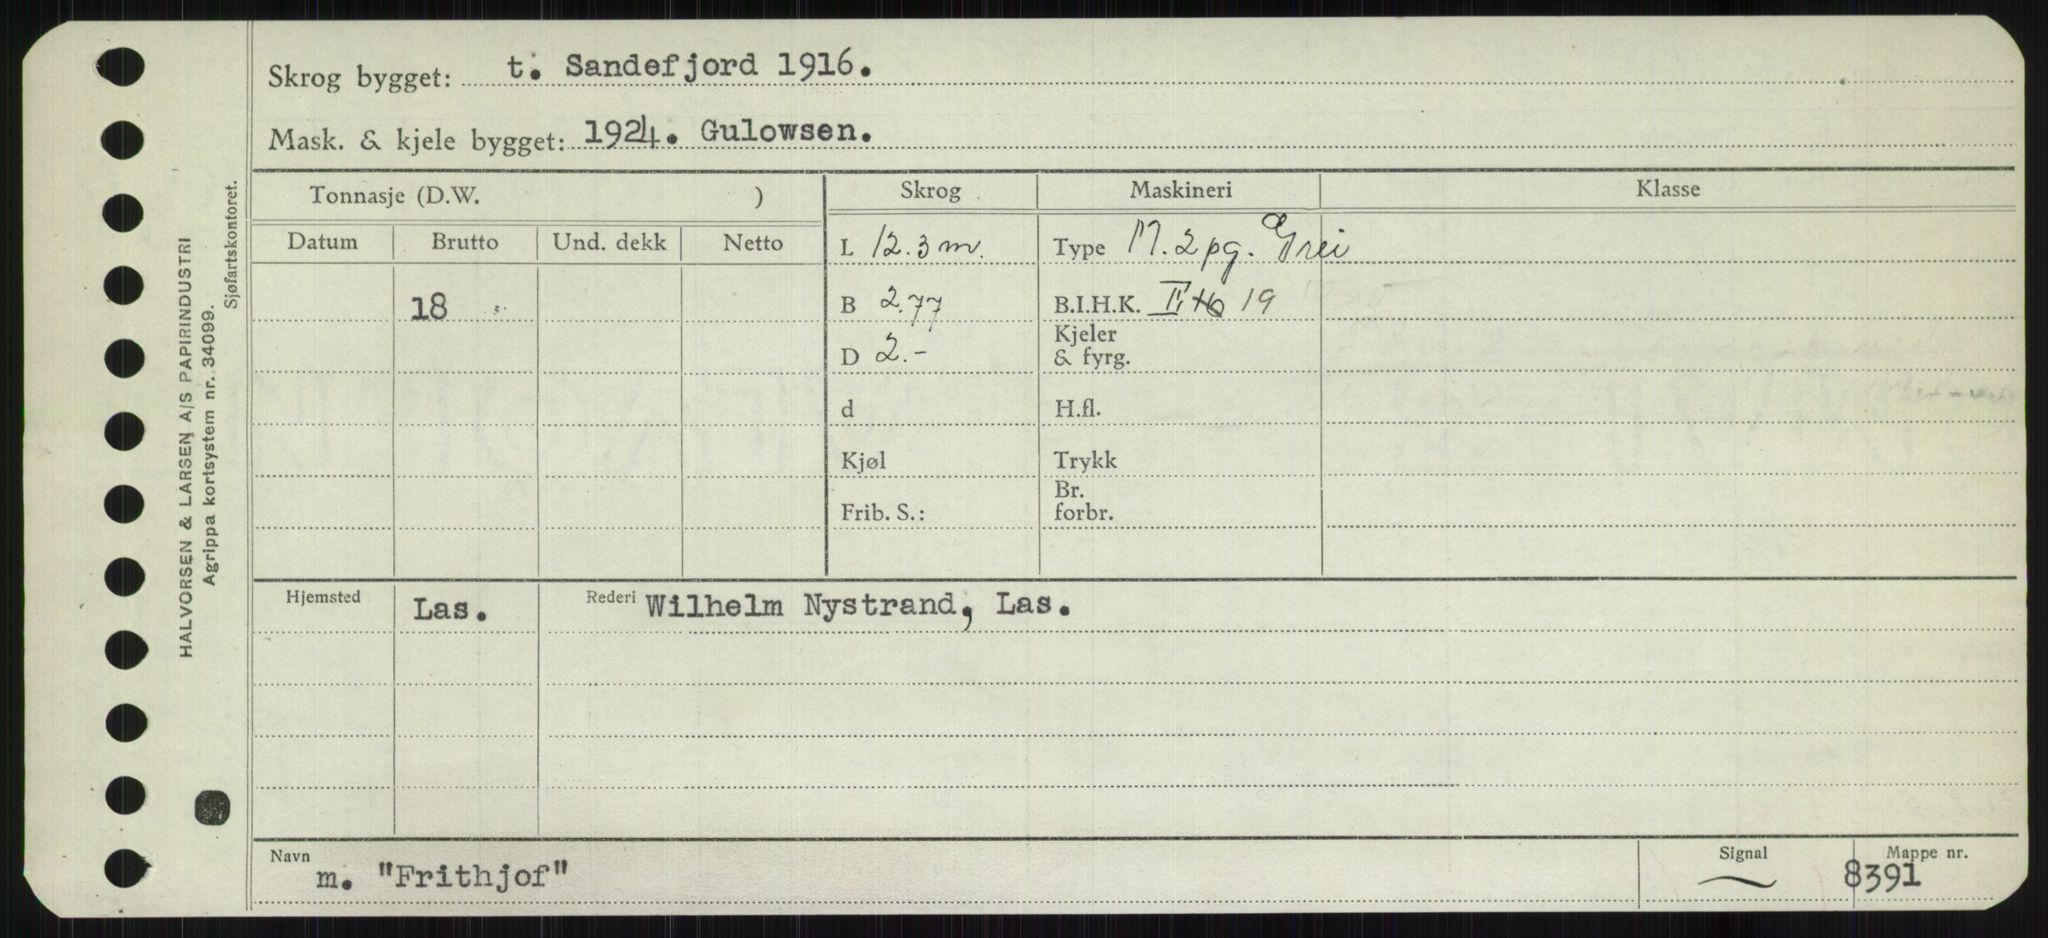 Skrog bygget: t. Sandefjord 1916.
Mask. & kjele bygget: 1924. Gulowsen.
Tonnasje (D.W. ) Skrog Maskineri Klasse
Datum Brutto Und. dekk Netto L 12.3 m. Type M. 2 pg. Grei
18 B 2.77 B.I.H.K. II, 19
Kjeler
D 2.- & fyrg.
d H.fl.
Kjøl Trykk
Br.
Frib. S.: forbr.
Hjemsted Las. Rederi Wilhelm Nystrand, Las.
Navn m. "Frithjof" Signal Mappe nr. 8391
HALVORSEN & LARSEN A/S PAPIRINDUSTRI
Agrippa kortsystem nr. 34099.
Sjøfartskontoret.